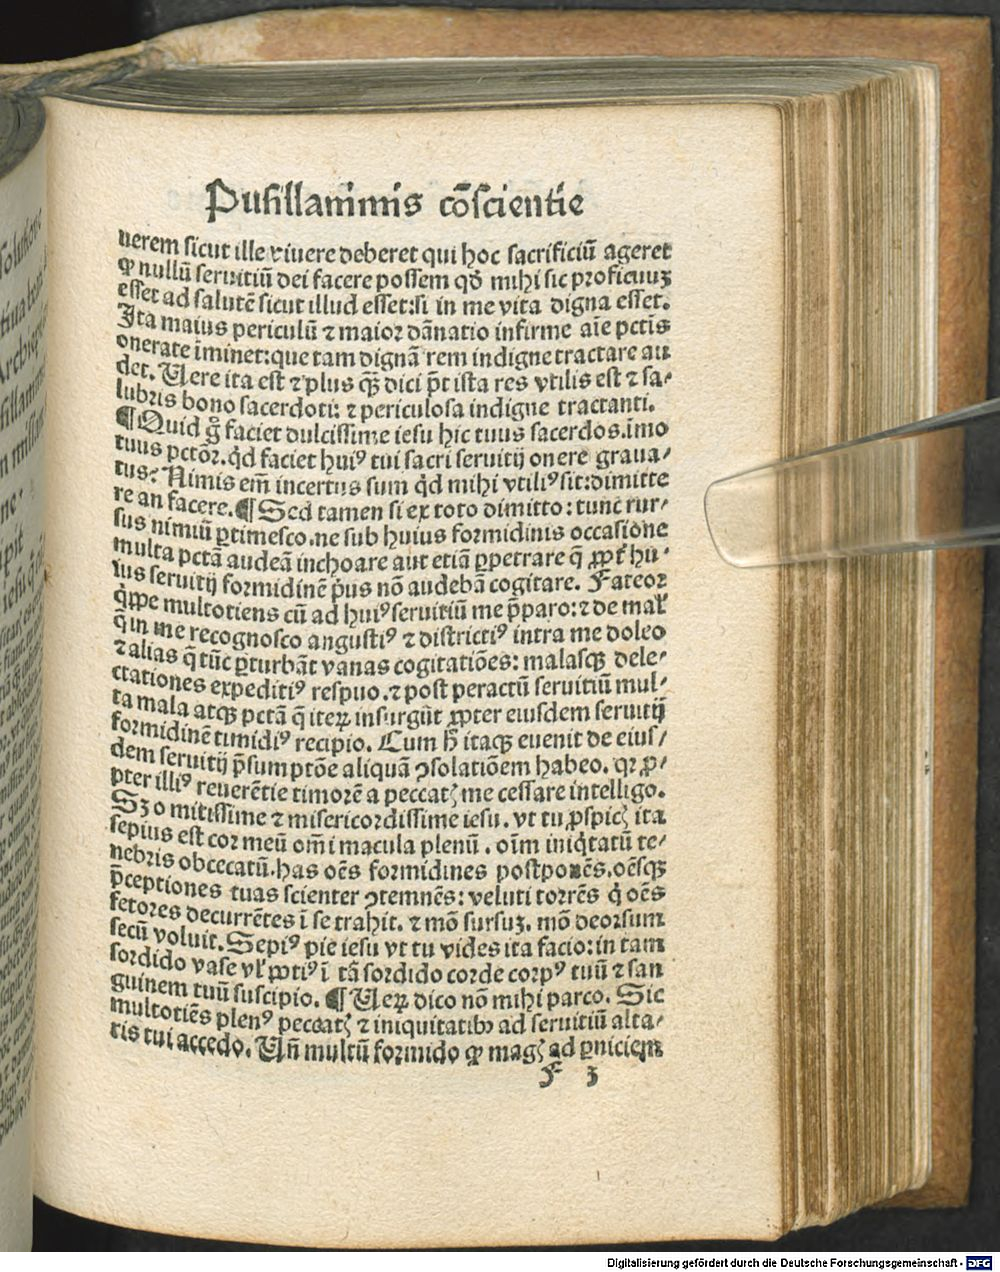 Pusillanimis cōscientie
uerem sicut ille viuere deberet qui hoc sacrificiū ageret
ꝙ nullū seruitiū dei facere possem qd̄ mihi sic proficuuʒ
esset ad salutē sicut illud esset: si in me vita digna esset.
Ita maius periculū ⁊ maior dānatio infirme aīe pctīs
onerate īminet: que tam dignā rem indigne tractare au
det. Uere ita est ⁊ plus qꝫ̄ dici pōt ista res vtilis est ⁊ sa⸗
lubris bono sacerdoti: ⁊ periculosa indigne tractanti.
¶Quid g̊ faciet dulcissime iesu hic tuus sacerdos. imo
tuus pctōr. qd̓ faciet huiꝰ tui sacri seruitij onere graua⸗
tus? Nimis em̄ incertus sum qd̓ mihi vtiliꝰ sit: dimitte
re an facere. ¶Sed tamen si ex toto dimitto: tunc rur⸗
sus nimiū ꝑtimesco. ne sub huius formidinis occasione
multa pctā audeā inchoare aut etiā ꝑpetrare q̄ ꝓpt̓ hu⸗
ius seruitij formidinē p̓us nō audebā cogitare. Fateor
q̓ppe multotiens cū ad huiꝰ seruitiū me p̄paro: ⁊ de mal̓
q̄ in me recognosco angustiꝰ ⁊ districtiꝰ intra me doleo
⁊ alias q̄ tūc ꝑturbāt vanas cogitatiōes: malasqꝫ dele⸗
ctationes expeditiꝰ respuo. ⁊ post peractū seruitiū mul⸗
ta mala atqꝫ pctā q̄ iteꝝ insurgūt ꝓpter eiusdem seruitij
formidinē timidiꝰ recipio. Cum h̄ itaqꝫ euenit de eius⸗
dem seruitij p̄sumptōe aliquā ꝯsolatiōem habeo. qꝛ ꝓ⸗
pter illiꝰ reuerētie timorē a peccatꝭ me cessare intelligo.
Sꝫ o mitissime ⁊ misericordissime iesu. vt tu ꝑspicꝭ ita
sepius est cor meū om̄i macula plenū. oīm iniq̓tatū te⸗
nebris obcecatū. has oēs formidines postponēs. oēsqꝫ
p̄ceptiones tuas scienter ꝯtemnēs: veluti torrēs q̓ oēs
fetores decurrētes ī se trahit. ⁊ mō sursuʒ. mō deorsum
secū voluit. Sepiꝰ pie iesu vt tu vides ita facio: in tam
sordido vase vl̓ potiꝰ ī tā sordido corde corpꝰ tuū ⁊ san
guinem tuū suscipio. ¶Ueꝝ dico nō mihi parco. Sic
multotiēs plenꝰ peccatꝭ ⁊ iniquitatibꝫ ad seruitiū alta⸗
ris tui accedo. Un̄ multū formido ꝙ magꝭ ad ꝑniciem
F 3
Digitalisierung gefördert durch die Deutsche Forschungsgemeinschaft - DFG